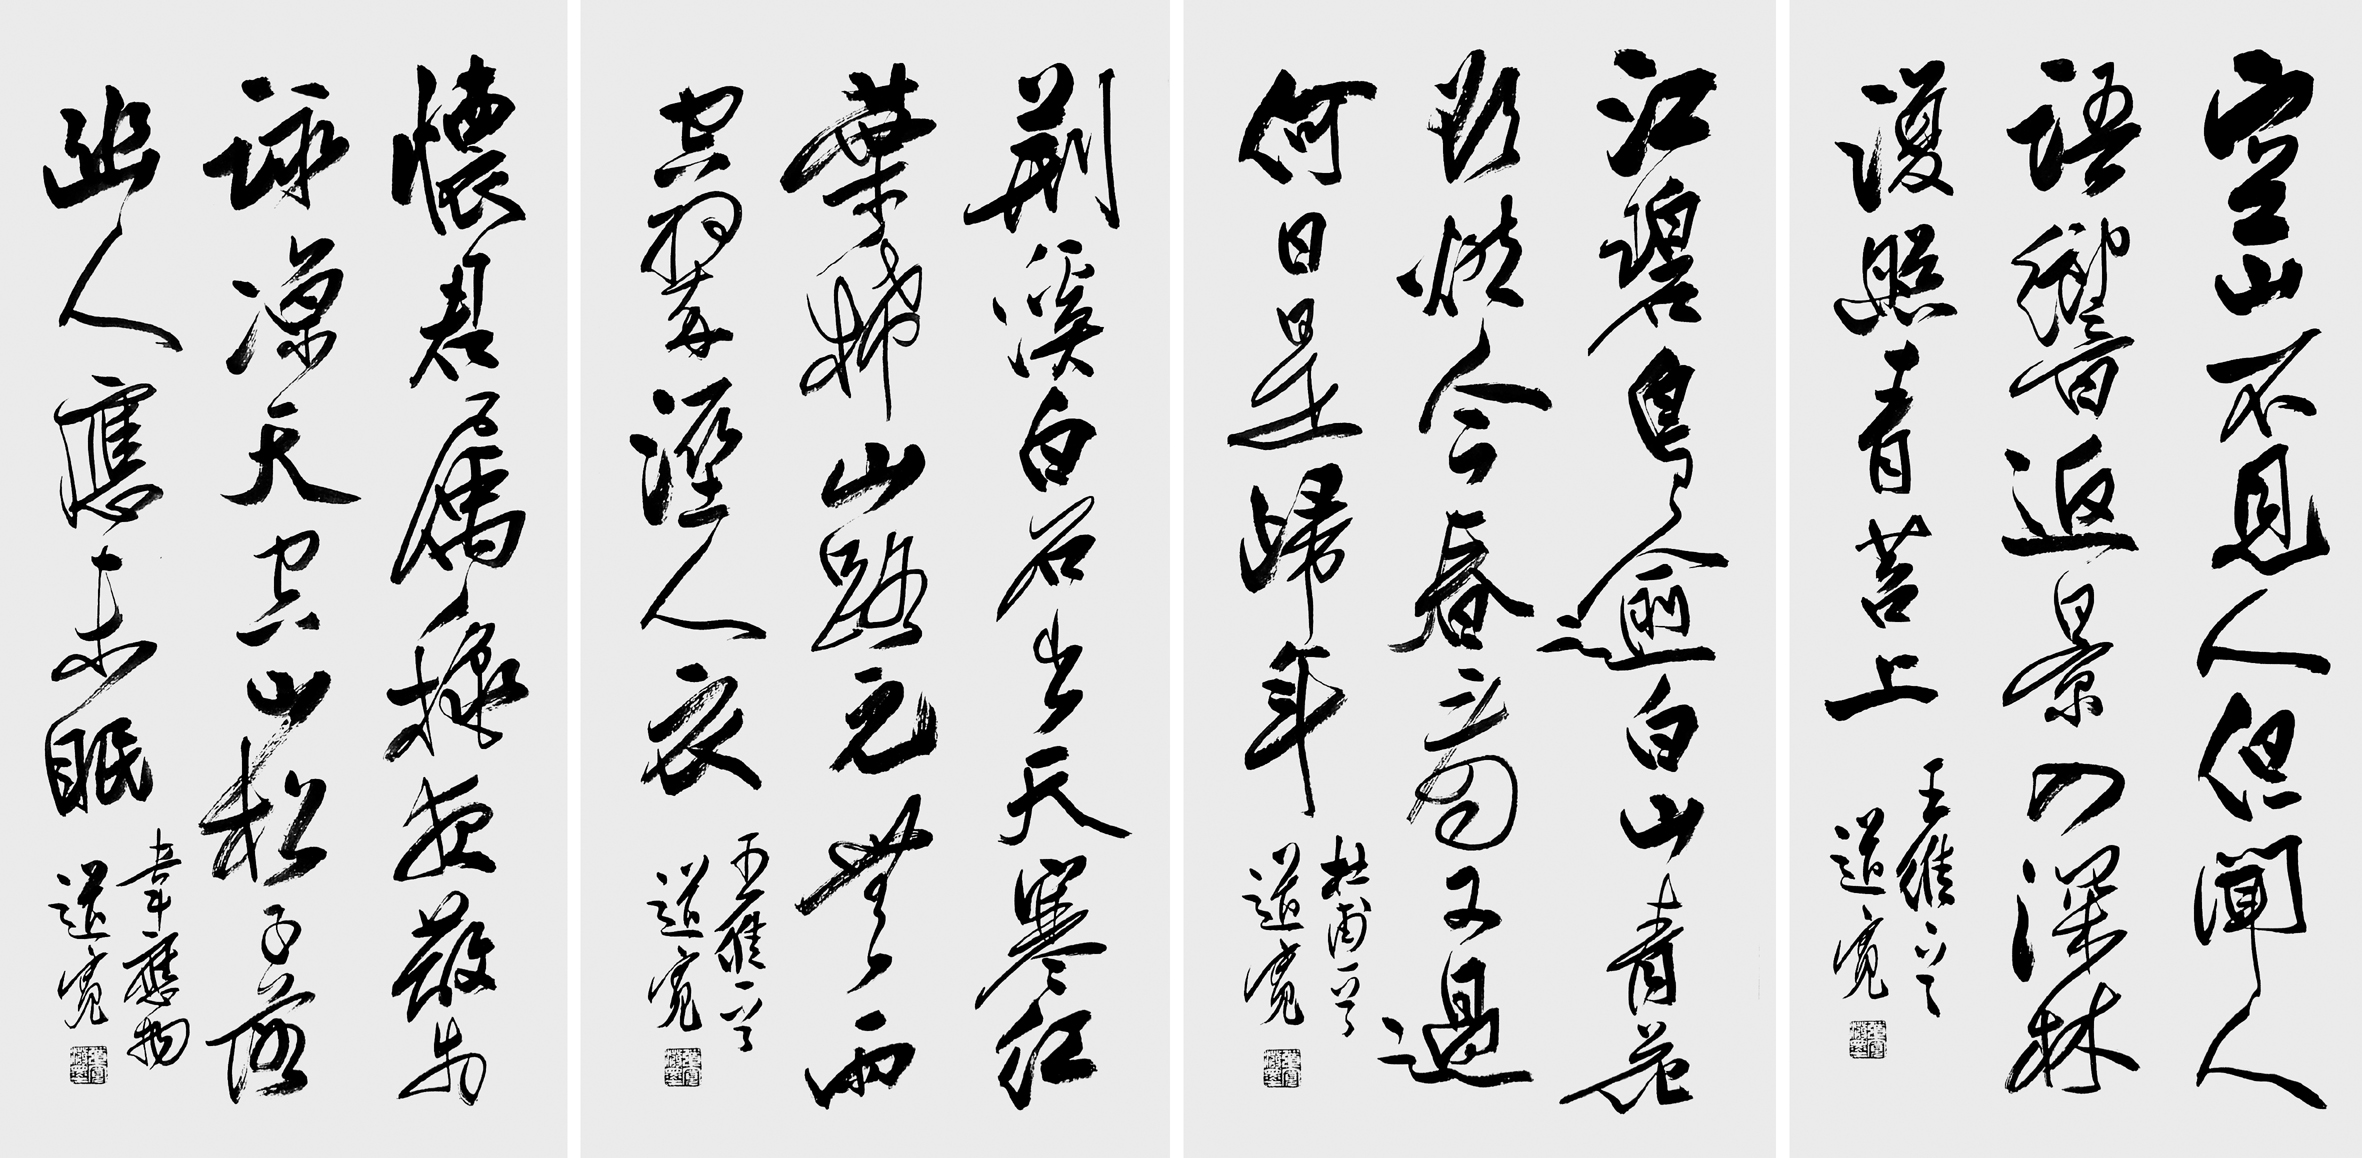 空山不見人但聞人
語響返景入深林
復照青苔上
王維
道寬
江碧鳥逾白山青花
欲燃今春看又過
何日是歸年
杜甫
道寬
荊溪白石出天寒紅
葉稀山路元無雨
空翠溼人衣
王維
道寬
懷君屬秋夜散步
詠涼天空山松子落
幽人應未眠
韋應物
道寬